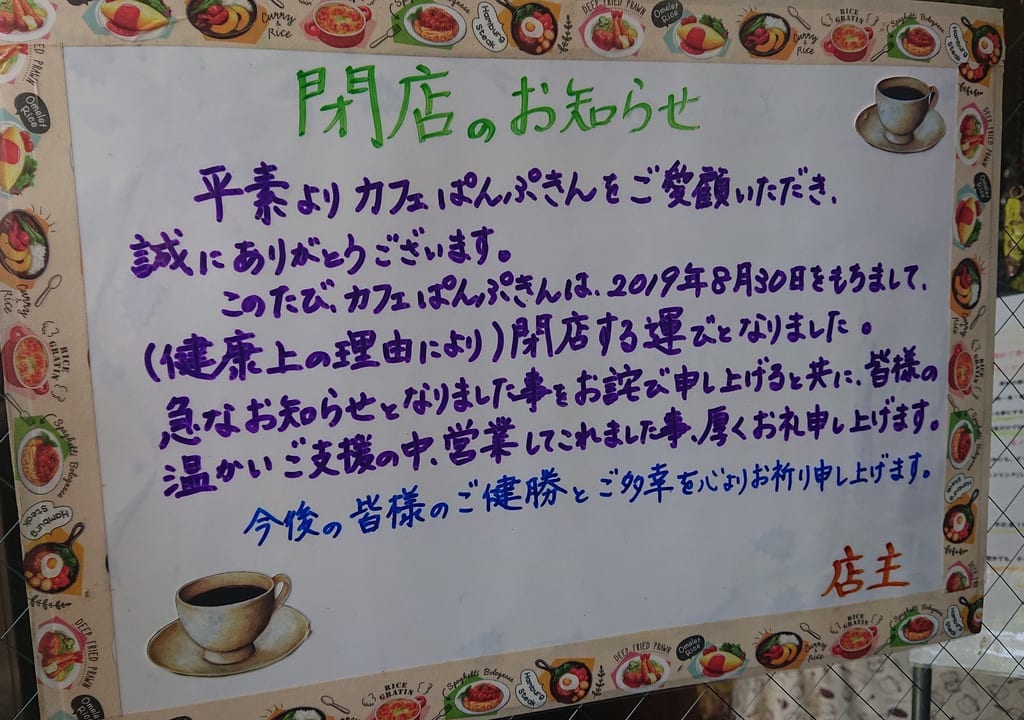 閉店のお知らせ
平素よりカフェぱんぷきんをご愛顧いただき、
誠にありがとうございます。
このたび、カフェぱんぷきんは、2019年8月30日をもちまして、
(健康上の理由により)閉店する運びとなりました。
急なお知らせとなりました事をお詫び申し上げると共に、皆様の
温かいご支援の中、営業してこれました事、厚くお礼申し上げます。
今後の皆様のご健勝とご多幸を心よりお祈り申し上げます。
店主
Curry & Rice
RICE GRATIN
Spaghetti Bolognese
Hamburg Steak
DEEP FRIED PRAWN
Omelet Rice